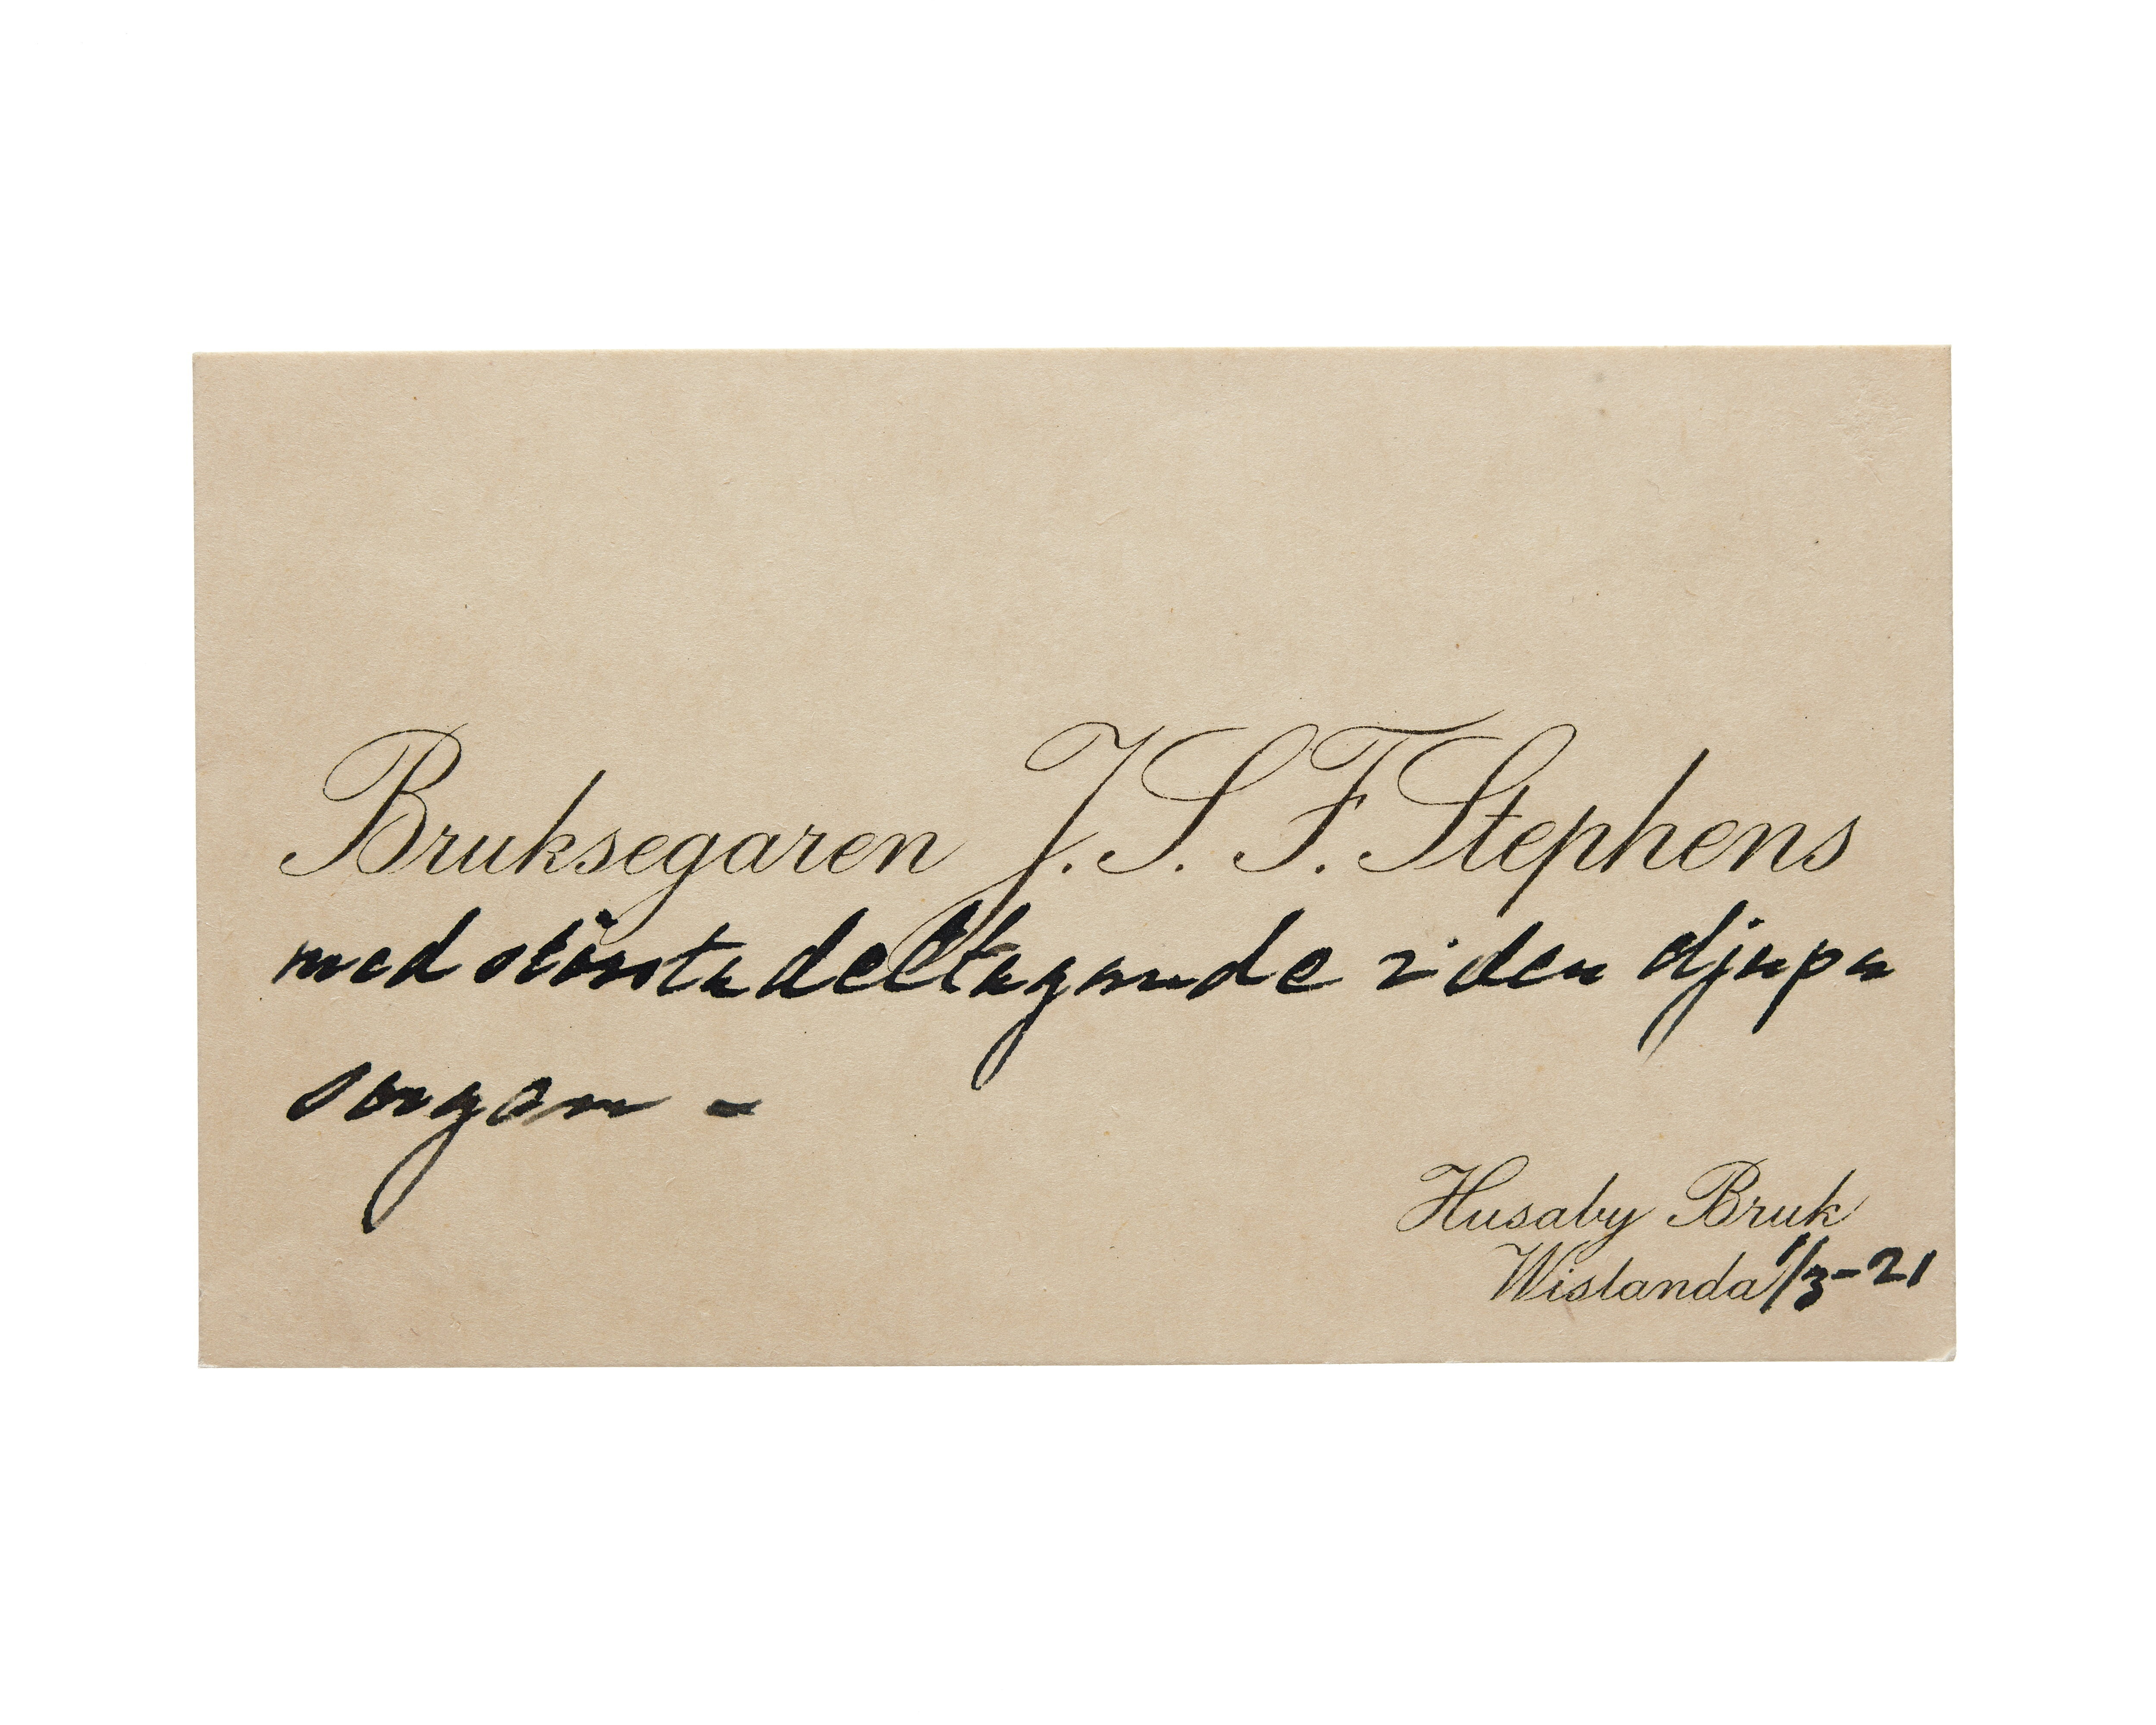 Bruksegaren J. S. F. Stephens
med största deltagande i den djupa
sorgen -
Husaby Bruk
Wislanda 1/3-21